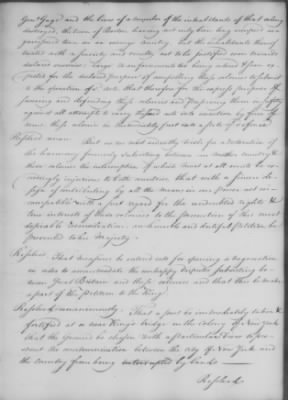 Genl Gage and the lives of a number of the inhabitants of that colony
destroyed, the town of Boston having not only been long occupied as a
garrisoned town in an enemy's country, but the inhabitants thereof
treated with a severity and cruelty not to be justified even towards
declared enemies; large reinforcements too being ordered & soon ex-
pected for the declared purpose of compelling these colonies to submit
to the operation of sd acts; that therefore for the express purpose of
securing and defending these colonies and preserving them in safety
against all attempts to carry the said acts into execution by force of
arms these colonies be immediately put into a state of defence
Resolved unan. But as we most ardently wish for a restoration of
the harmony formerly subsisting between our mother country &
these colonies the interruption of which must at all events be ex-
ceedingly injurious to both countries, that with a sincere de-
sign of contributing by all the means in our power not incom-
patible with a just regard for the undoubted rights &
true interests of these colonies to the promotion of this most
desirable reconciliation an humble and dutiful Petition be
presented to his Majesty.
Resolved That measures be entered into for opening a negociation
in order to accommodate the unhappy disputes subsisting be-
tween Great Britain and these colonies and that this be made
a part of the Petition to the King
Resolved unanimously That a post be immediately taken &
fortified at or near King's bridge in the colony of New York
that the Ground be chosen with a particular view to pre-
vent the communication between the city of New York and
the country from being interrupted by land
Resolved